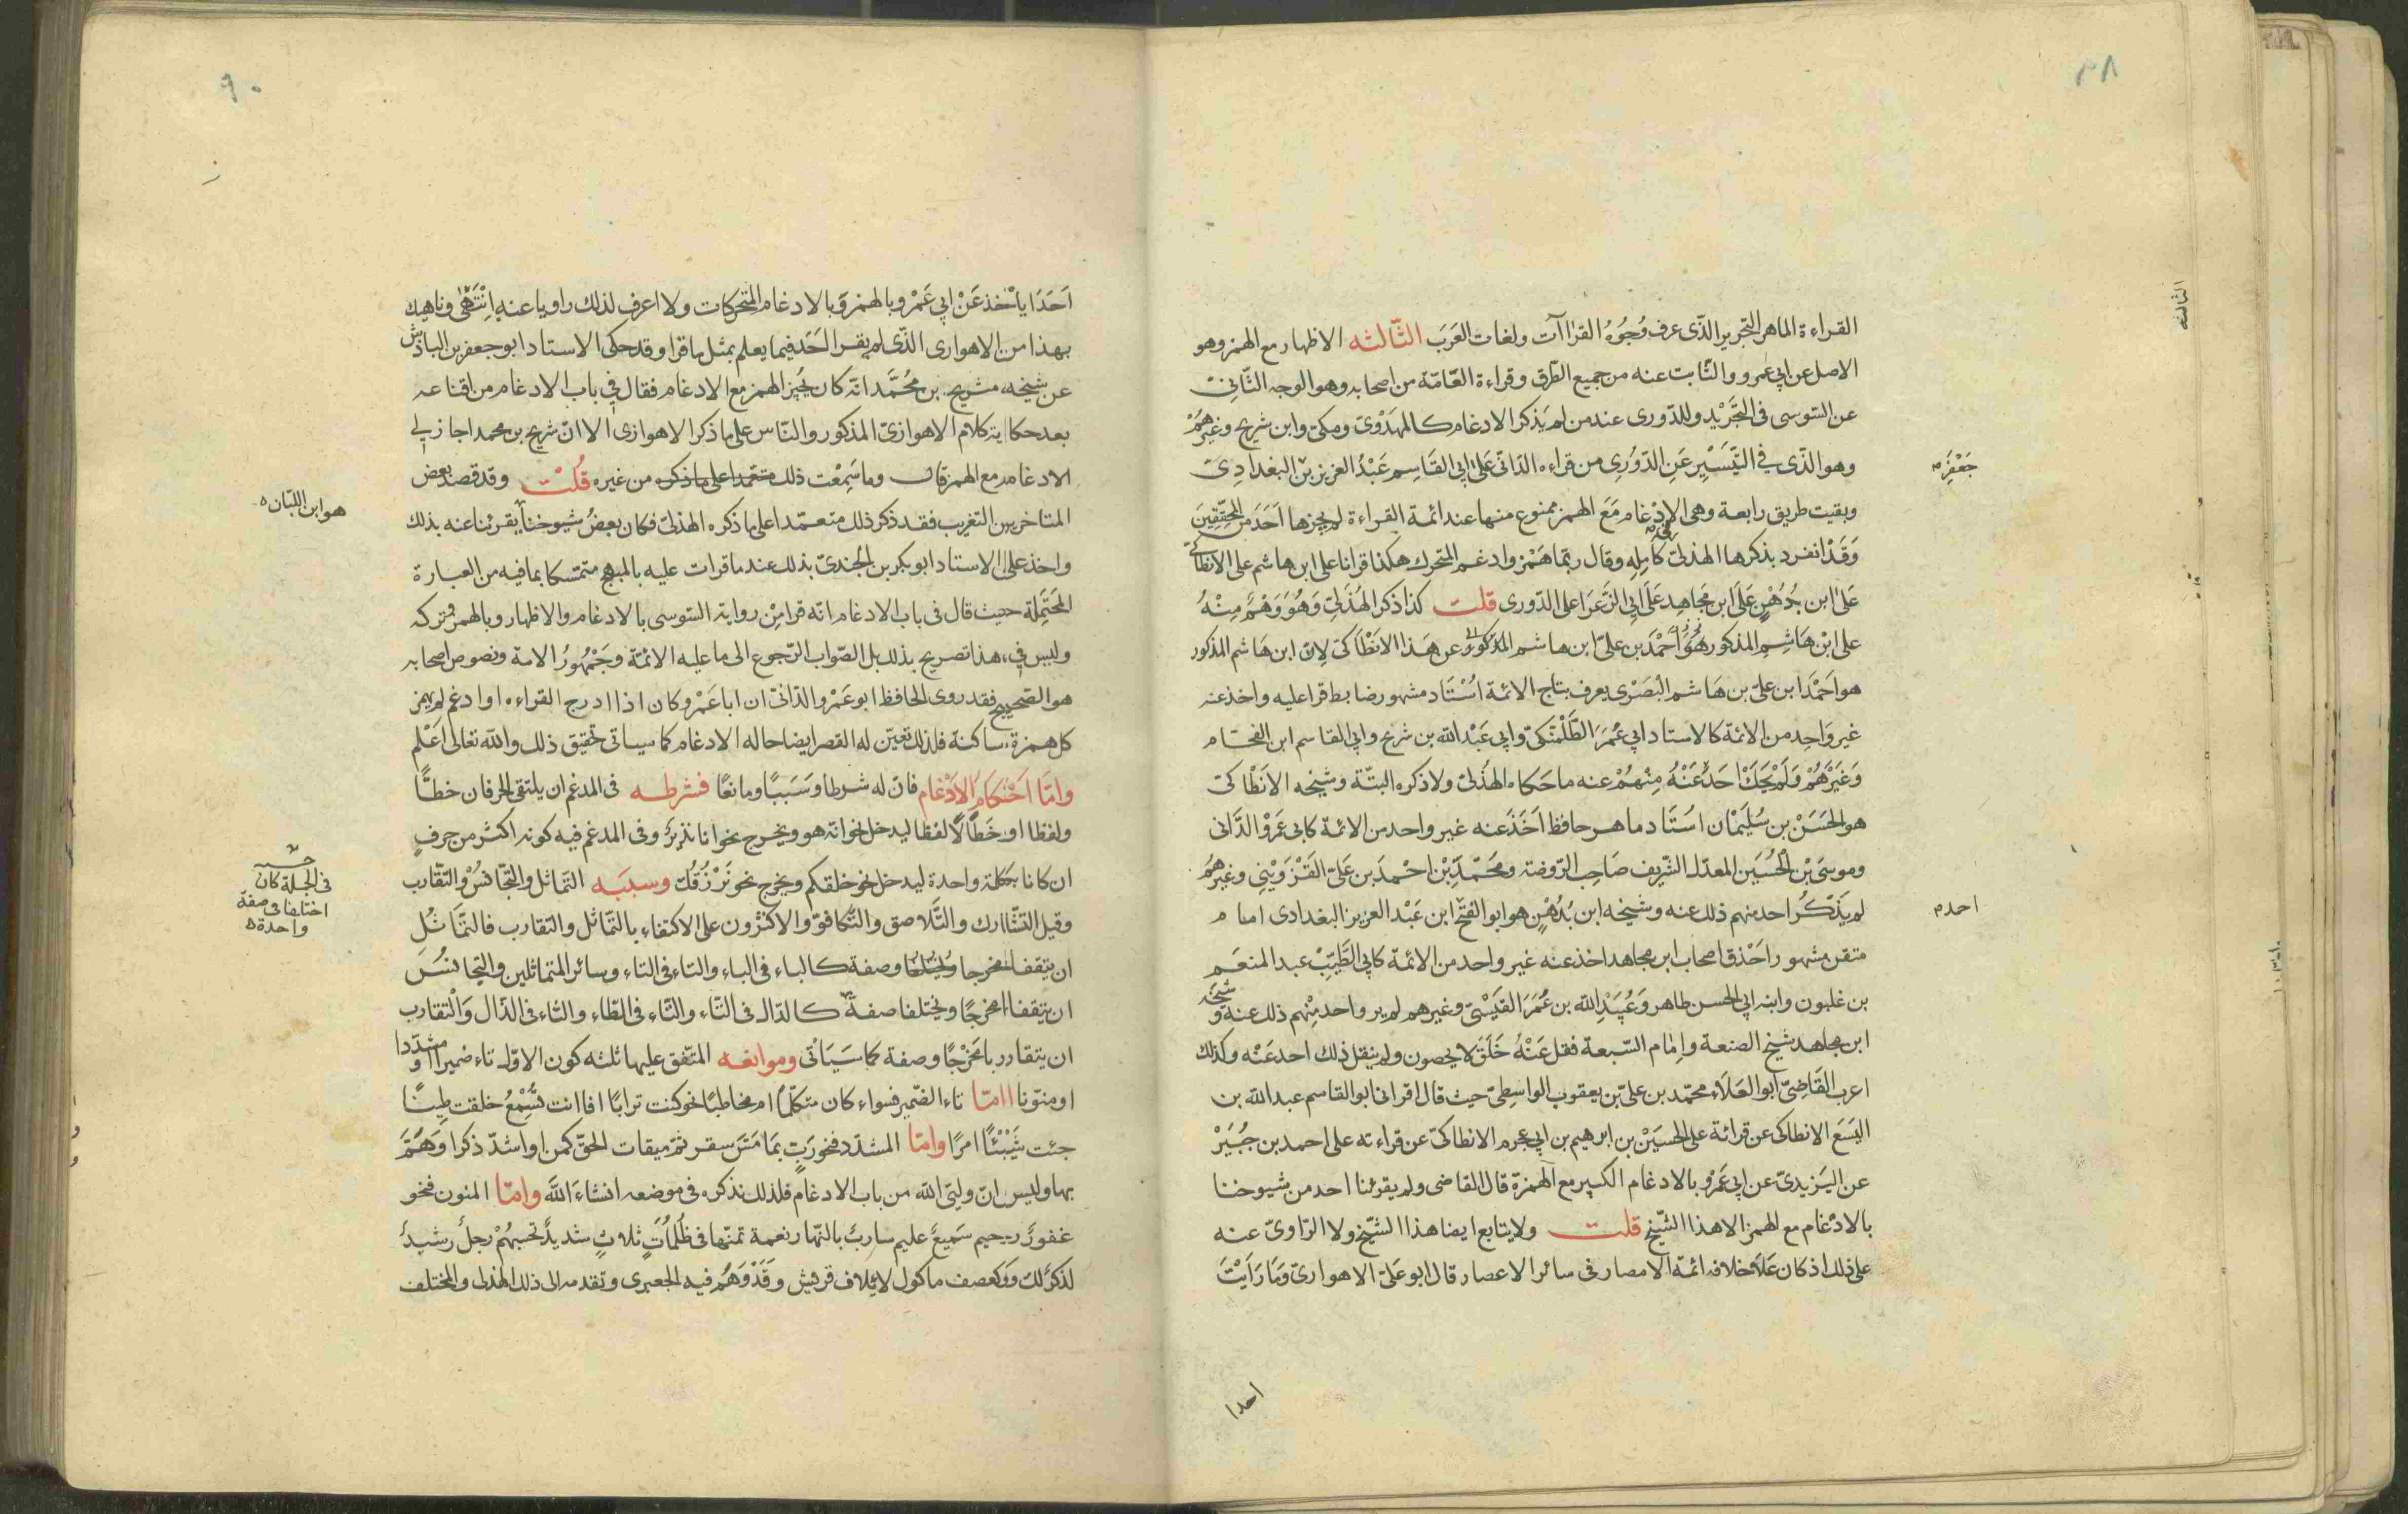 القراءة الماهر التجرير الذى عرف وُجُوْهُ القراآت ولغات العَرَبَ الثّالثه الاظهار مع الهمز وهو
الاصل عن ابي عمرو والثّابت عنه من جميع الطّرق وقراءة العَامّة من اصحابه وهو الوجه الثّانى
عن السّوسى فى التّجْرَيْد وللدّورى عند من لم يَذكر الادغام كالمهَدْوىّ ومكىّ وابن شريح وغيرهمْ
وهو الذّى في التّيَسْيْر عَنِ الدّوْرِى من قراءه الدّانىّ عَلىٰ ابِي القَاسِم عَبْدُ العزيز بنْ البغدادِىّ
جَعْفَرٍ م
وبقيت طريق رابعة وهى الادْغام مَعَ الهمز ممنوع منها عند ائمة القراءة لم يجزها اَحَدَ من المحَقِّقِينَ
وَقَدْ انفرد بذكرها الهذلىّ فى كامِلِه وقال ربّما هَمْز وادغم المتحرك هكذا قرانا على ابن هاشم على الانطاكىّ
عَلىٰ ابن بُدُهْنٍ عَلىَ ابن مجَاهِد عَلىَ ابِي الزَعَرَا على الدّورى قلت كذا ذكر الهُذَلِىّ وَهُوَ وَهْمٌ مِنْهُ
على ابْن هَاشِمِ المذكور هُوَ اَحْمَدَ بن علىّ ابن هاشم المذكور وعن هَذا الانْطَاكىّ لِانّ ابن هَاشم المذكور
هو احْمَدَ ابن علىّ بن هَاشم البَصْرى يعرف بتاج الائمة اسْتَاد مشهور ضابط قرا عليه واخذ عنه
غير وَاحِد من الائمة كالاستاد ابي عُمَرَ الطّلَمْنَكىّ وابي عَبْد اللّه بن شريح وابي القاسم ابن الفحّام
وَغَيْرَهُمْ وَلَمْ يحْكِ اَحَدٌ عَنْهُ مِنْهُمْ عنه ما حَكاه الهُذَلىّ ولا ذكره البتّة وشيخه الانَطاكىّ
هو الحَسَنْ بن سُليَمْان اسْتَاد ماهر حافظ اَخَذَ عنه غير واحد من الائمة كابي عَمرْو الدّانى
وموسىَ بْن الحُسَين المعدّل الشّريف صَاحب الرّوضة ومحَمّدَ بْن احْمدَ بن عَلىّ القَزْوَيْنِى وغيرهمْ
لم يَذكُر احد منهم ذلك عنه وشيخه ابن بُدُهْنٍ هو ابو الفتحْ ابن عَبْد العزيز البغدادى امام
احمد م
متقن مشهور احَذق اصحاب ابن مجاهد اخذ عنه غير واحد من الائمة كابي الطّيّبْ عبد المنعم
بن غلبون وابنه ابي الحسن طاهر وَعُبَيْدِ اللّه بن عُمَرَ القَيَسْىّ وغيرهم لم يرو احد مِنْهم ذلك عنه وشيخه
ابن مجاهد شيخ الصنعة وامام السّبعة فقل عَنْهُ خَلَقَ لا يحصون ولم ينقل ذلك احد عَنْه وكذلك
اعرب القَاضِىّ ابو العَلاَء محمّد بن علىّ بن يعقوب الواسِطىّ حيث قال اقرانى ابو القاسم عبد اللّه بن
اليَسَعَ الانطاكى عن قرائة على الحسَيَنْ بن ابرهيم بن ابي عجرم الانطاكىّ عن قراءته على احمد بن جُبَيَرْ
عن اليَزيدىّ عن ابي عَمرْو بالادغام الكبير مع الهمزة قال القاضى ولم يقرئنا احد من شيوخنا
بالادْغام مع الهمز الا هذا الشّيخ قلت ولا يتابع ايضا هذا الشّيخ ولا الرّاوىّ عنه
على ذلك اذ كان عَلىَ خلافه ائمة الامصار فى سائر الاعصار قال ابو عَلىّ الاهوارىّ وَمَا رَايَتْ
احدا
٩٠
اَحَدَا يأخذ عَنْ اَبِي عَمْرو بالهمز وَبالادغام المتحركات ولا اعرف لذلك راويا عنه اِنْتَهىٰ وناهيك
بهذا من الاهوارى الذّى لم يقرا احَد فيما يعلم بمثل ما قرا وقد حكى الاستاد ابو جعفر بن الباذش
عن شيخه شريح بن محُمَّد انّه كان يُجيز الهمز مع الادغام فقال في باب الادغام من اقناعه
بعد حكاية كلام الاهوازىّ المذكور والنّاس على ما ذكر الاهوازى الا انّ شريح بن محمد اجاز لى
الادغام مع الهمز قال وما سَمِعْت ذلك معتمدا على ما ذكره من غيره قُلتْ وقد قصد بعض
المتاخرين التغريب فقد ذكر ذلك متعمّدا على ما ذكره الهذلىّ فكان بعضُ شيوخنا يقرئنا عنه بذلك
هو ابن اللبّان ه
واخذ علىّ الاستاد ابو بكر بن الجُندىّ بذلك عند ما قرات عليه بالمبهج متمسّكا بما فيه من العبارة
المحَتِملة حيث قال فى باب الادغام انّه قرا مِنْ رواية السّوسى بالادغام والاظهار وبالهمز وتركه
وليس فى هذا تصريح بذلك بل الصّواب الرّجوع الى ما عليه الائمّة وَجَمْهُورُ الامة ونصوص اصحابه
هو الصّحيح فقد روى الحافظ ابو عَمْرو الدّانىّ ان ابا عَمْرو كان اذا ادرج القراءه او ادغم لم يهمز
كل همزة ساكنة فلذلك تعيّن له القصر ايضا حاله الادغام كما سياتى تحقيق ذلك واللّه تعالى اَعْلم
وامّا اَحْكامُ الاَدْغام فانّ له شرطا وَسَبَبًا ومانعًا فشرطه فى المدغم ان يلتقى الحرفان خطّا
ولفظا او خَطّا لا لفظا ليدخل نحو انه هو ويخرج نحو انا نذير وفى المدغم فيه كونه اكثر من حرفٍ
ان كانا بكلمة واحدة ليدخل نحو خلقكم ويخرج نحو نَرْزُقُكَ وسببَه التّماثل والتّجَانسُ والتّقارب
فى الجملة كان
اختلفا فى صفة
واحدة
وقيل التشّارك والتّلاصق والتّكافؤ والاكثرون على الاكتفاء بالتّماثل والتقارب فالتّماَثُل
ان يتفقا مخرجا وصفة كالباء فى الباء والتاء فى التاء وسائر المتماثلين والتّجانسُ
ان يتّفقا مخرجًا ويختلفا صفةً كالدّال فى التّاء والثّاء فى الطّاء والثاء فى الذّال وَالْتقارب
ان يتقاربا مخَرْجًا وصفة كما سَيَاتْى وموانعه المتّفق عليها ثلثه كون الاوّل تاء ضمير او مشدّدا
او منوّنا امّا تاء الضّمير فسواء كان متكلّمًا ام مخاطبًا نحو كنت ترابًا افانت تُسْمِعُ خلقت طِينًا
جئت شَيْئًا امرًا وامّا المشدّد فنحو رَبِّ بمَا مَسّ سقر ثمّ ميقات الحقّ كمن او اشدّ ذكرا وَهَمّ
بها وليس انّ ولىّ اللّه من باب الادغام فلذلك نذكره فى موضعه انشاءَ اللّه وامّا المنون فنحو
غفورٌ رحيم سَميعٌ عليم سارب بالنّهار نعمة تمنّها فى ظُلُمَاتٍ ثلاثٍ شديدٌ تحسبهُمْ رجلٌ رشيدٌ
لذكرٌ لك وكعصف ماكول لايلاف قريش وقَدْ وَهُم فيه الجعبرى وتقدمه الى ذلك الهذلى والمختلف